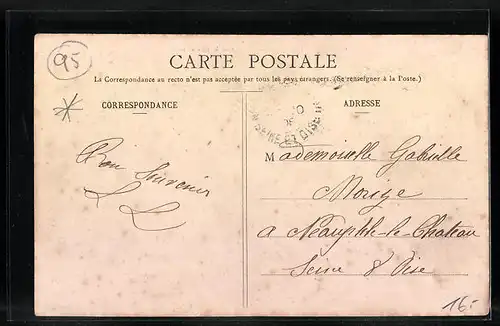 95
CARTE POSTALE
La Correspondance au recto n'est pas acceptée par tous les pays étrangers. (Se renseigner à la Poste.)
CORRESPONDANCE
ADRESSE
SEINE ET OISE
Bon Souvenir
Mademoiselle Gabrielle
a Neauphle-le-Chateau
Seine & Oise
16.-